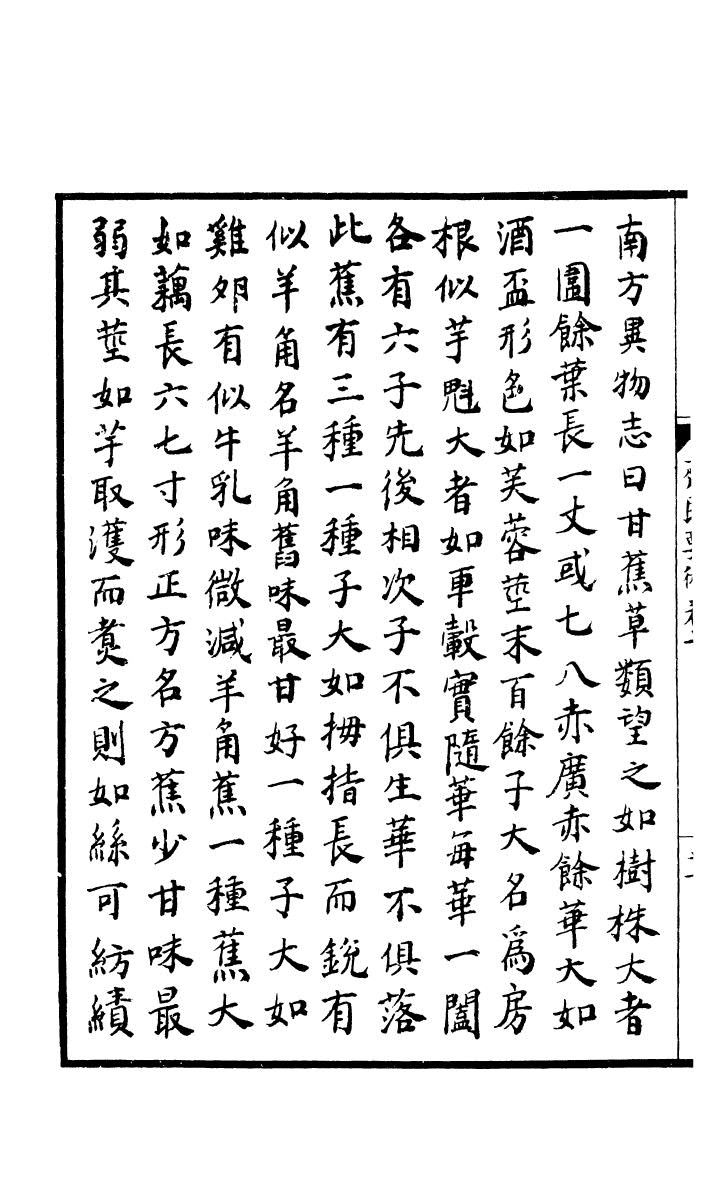 南方異物志曰甘蕉草類望之如樹株大者
一圍餘葉長一丈或七八赤廣赤餘華大如
酒盃形色如芙蓉莖末百餘子大名為房
根似芋魁大者如車轂實隨華每華一闔
各有六子先後相次子不俱生華不俱落
此蕉有三種一種子大如拇指長而銳有
似羊角名羊角舊味最甘好一種子大如
雞卵有似牛乳味微減羊角蕉一種蕉大
如藕長六七寸形正方名方蕉少甘味最
弱其莖如芋取濩而煑之則如絲可紡績